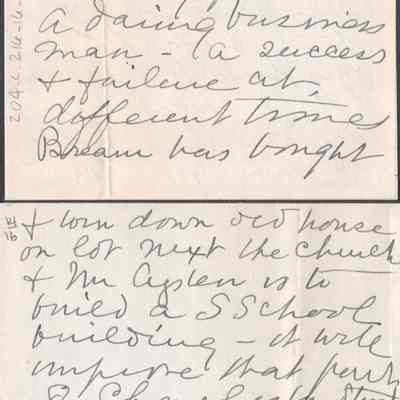 a daring business
man - a success
& failure at
different times
Bream has bought
& torn down old house
on lot next the church
& Mr is to
build a S School
building - it will
improve that part